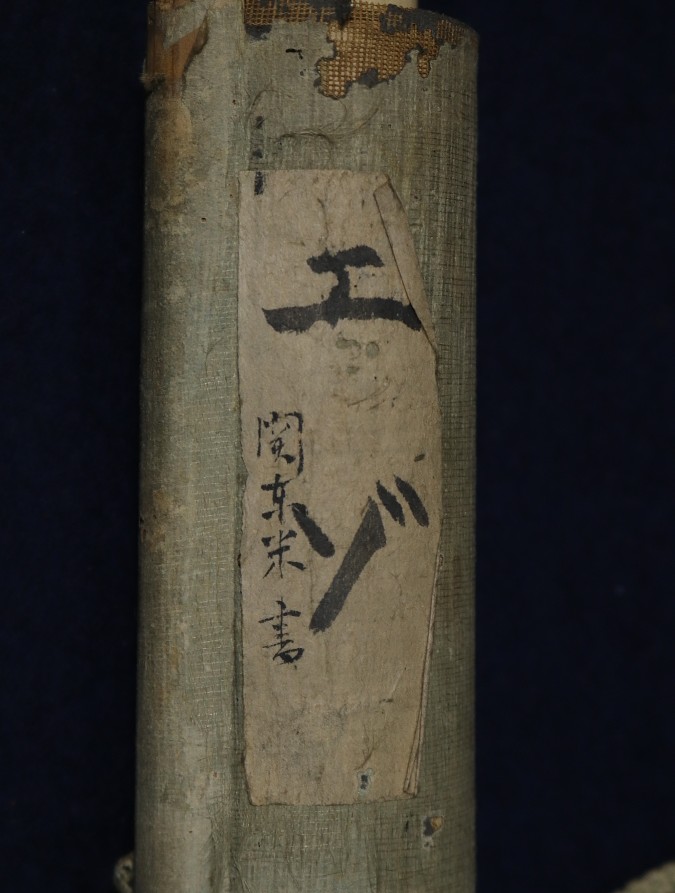 エゾ
関东米書